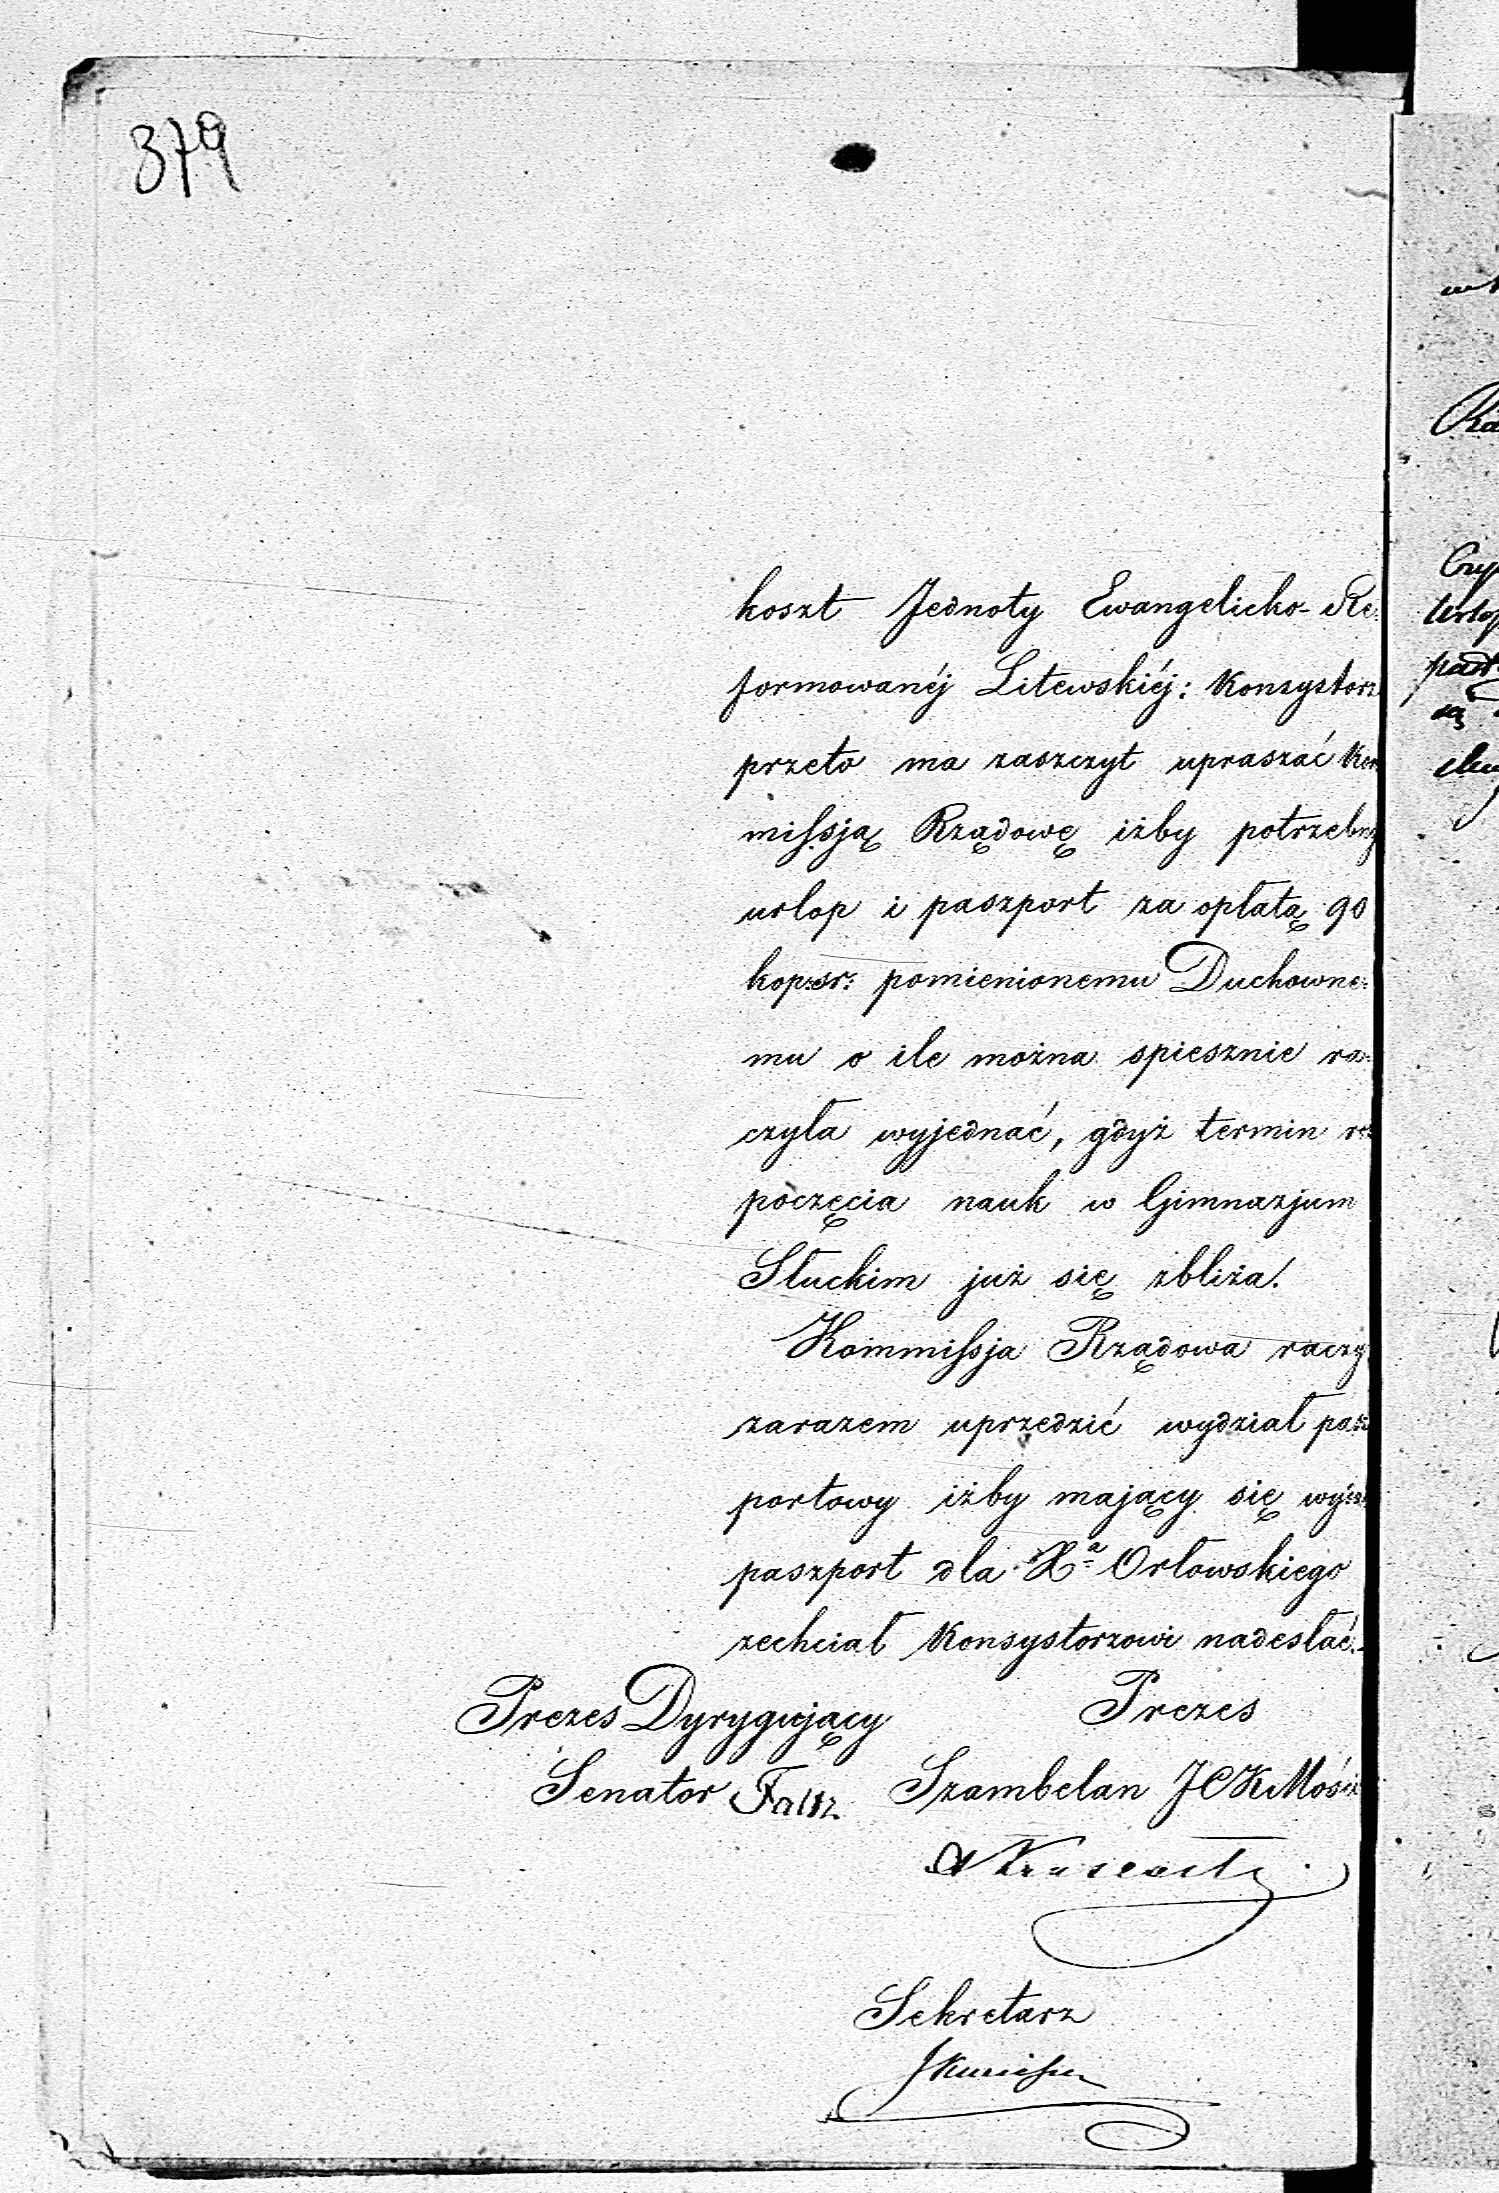 379
koszt Jednoty Ewangelicko-Re-
formowanéj Litewskiéj: Konsystorz
przeto ma zaszczyt upraszać Kom
missją Rządowę iżby potrzebny
urlop i paszport za opłatą 90
kop:sr: pomienionemu Duchowne-
mu o ile można spiesznie ra-
czyła wyjednać, gdyż termin roz
poczęcia nauk w Gimnazjum
Słuckim już się zbliża.
Kommissja Rządowa raczy
zarazem uprzedzić wydział pasz
portowy iżby mający się
paszport dla Xa Orłowskiego
zechciał Konsystorzowi nadesłać.-
Prezes Dyrygujący
Prezes
Senator
Szambelan JCKMości
Sekretarz